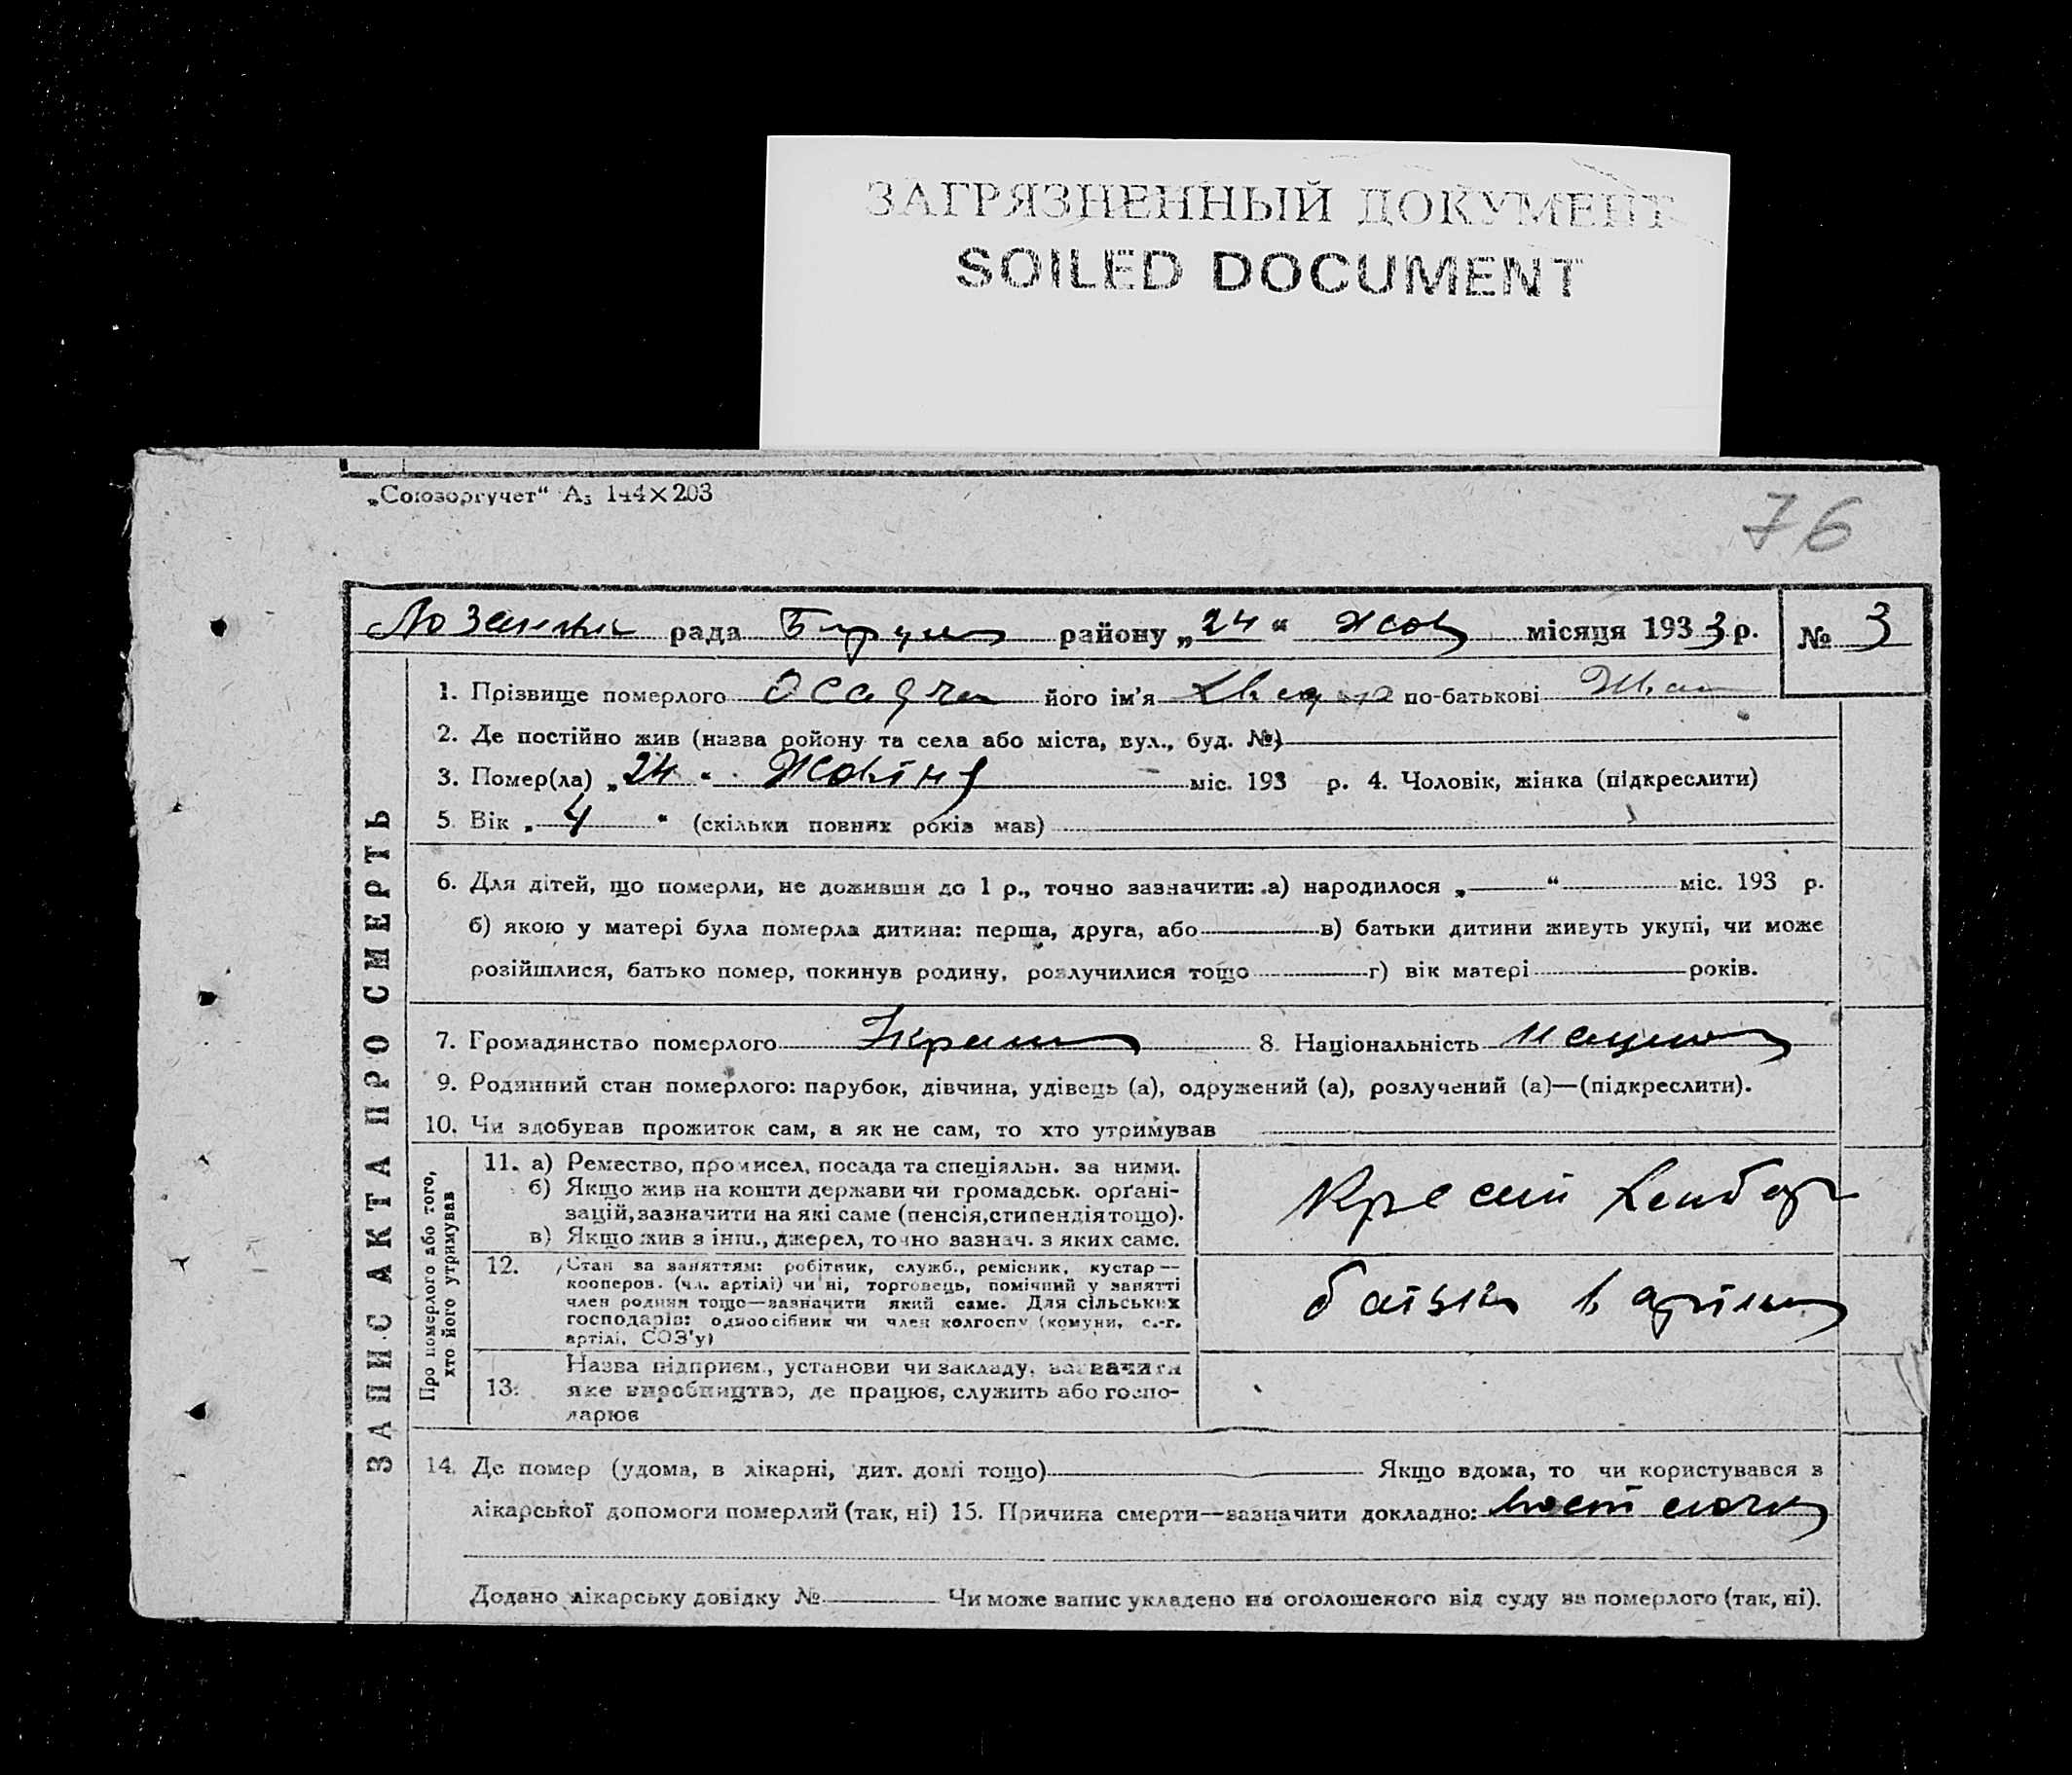 ЗАГРЯЗНЕННЫЙ ДОКУМЕНТ
SOILED DOCUMENT
„Союзоргучет“ А₅ 144×203
76
рада району „24“ Жов місяця 1933 р. № 3
ЗАПИС АКТА ПРО СМЕРТЬ
1. Прізвище померлого Осадча його ім’я по-батькові
2. Де постійно жив (назва ройону та села або міста, вул., буд. №)
3. Помер(ла) „24“ міс. 193 р. 4. Чоловік, жінка (підкреслити)
5 Вік „4“ (скільки повних років мав)
6. Для дітей, що померли, не доживши до 1 р., точно зазначити: а) народилося „ “ міс. 193 р.
б) якою у матері була померла дитина: перша, друга, або в) батьки дитини живуть укупі, чи може
розійшлися, батько помер, покинув родину, розлучилися тощо г) вік матері років.
7. Громадянство померлого 8. Національність
9. Родинний стан померлого: парубок, дівчина, удівець (а), одружений (а), розлучений (а)—(підкреслити).
10. Чи здобував прожиток сам, а як не сам, то хто утримував
Про померлого або того,
хто його утримував
11. а) Ремество, промисел, посада та спеціяльн. за ними.
б) Якщо жив на кошти держави чи громадськ. орґані-
зацій, зазначити на які саме (пенсія, стипендія тощо).
в) Якщо жив з інш., джерел, точно зазнач. з яких саме.
12. Стан за заняттям: робітник, служб., ремісник, кустар—
кооперов. (чл. артілі) чи ні, торговець, помічний у занятті
член родини тощо—зазначити який саме. Для сільських
господарів: одноосібник чи член колгоспу (комуни, с.-г.
артілі, СОЗ'у)
13. Назва підприєм., установи чи закладу, зазначити
яке виробництво, де працює, служить або госпо-
дарює
14. Де помер (удома, в лікарні, дит. домі тощо) Якщо вдома, то чи користувався з
лікарської допомоги померлий (так, ні) 15. Причина смерти—зазначити докладно:
Додано лікарську довідку № Чи може запис укладено на оголошеного від суду за померлого (так, ні).